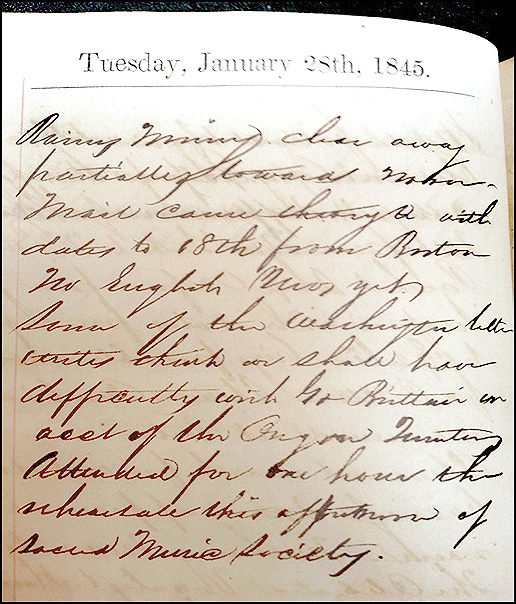 Tuesday, January 28th, 1845.
Rainy Morning clear away
partially toward noon.
Mail came through with
dates to 18th from Boston
No English News yet
Some of the Washington letter
writes think we shall have
difficulty with Gt Brittain on
acct of the Oregon Territory
Attended for one hour the
rehearsale this afternoon of
Sacred Music Society.